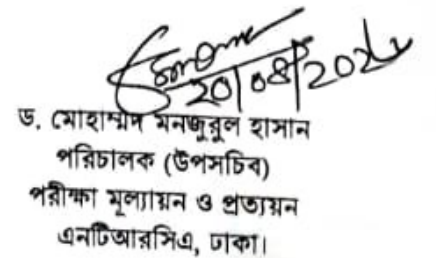 20/08/202
ড. মোহাম্মদ মনজুরুল হাসান
পরিচালক (উপসচিব)
পরীক্ষা মূল্যায়ন ও প্রত্যয়ন
এনটিআরসিএ, ঢাকা।